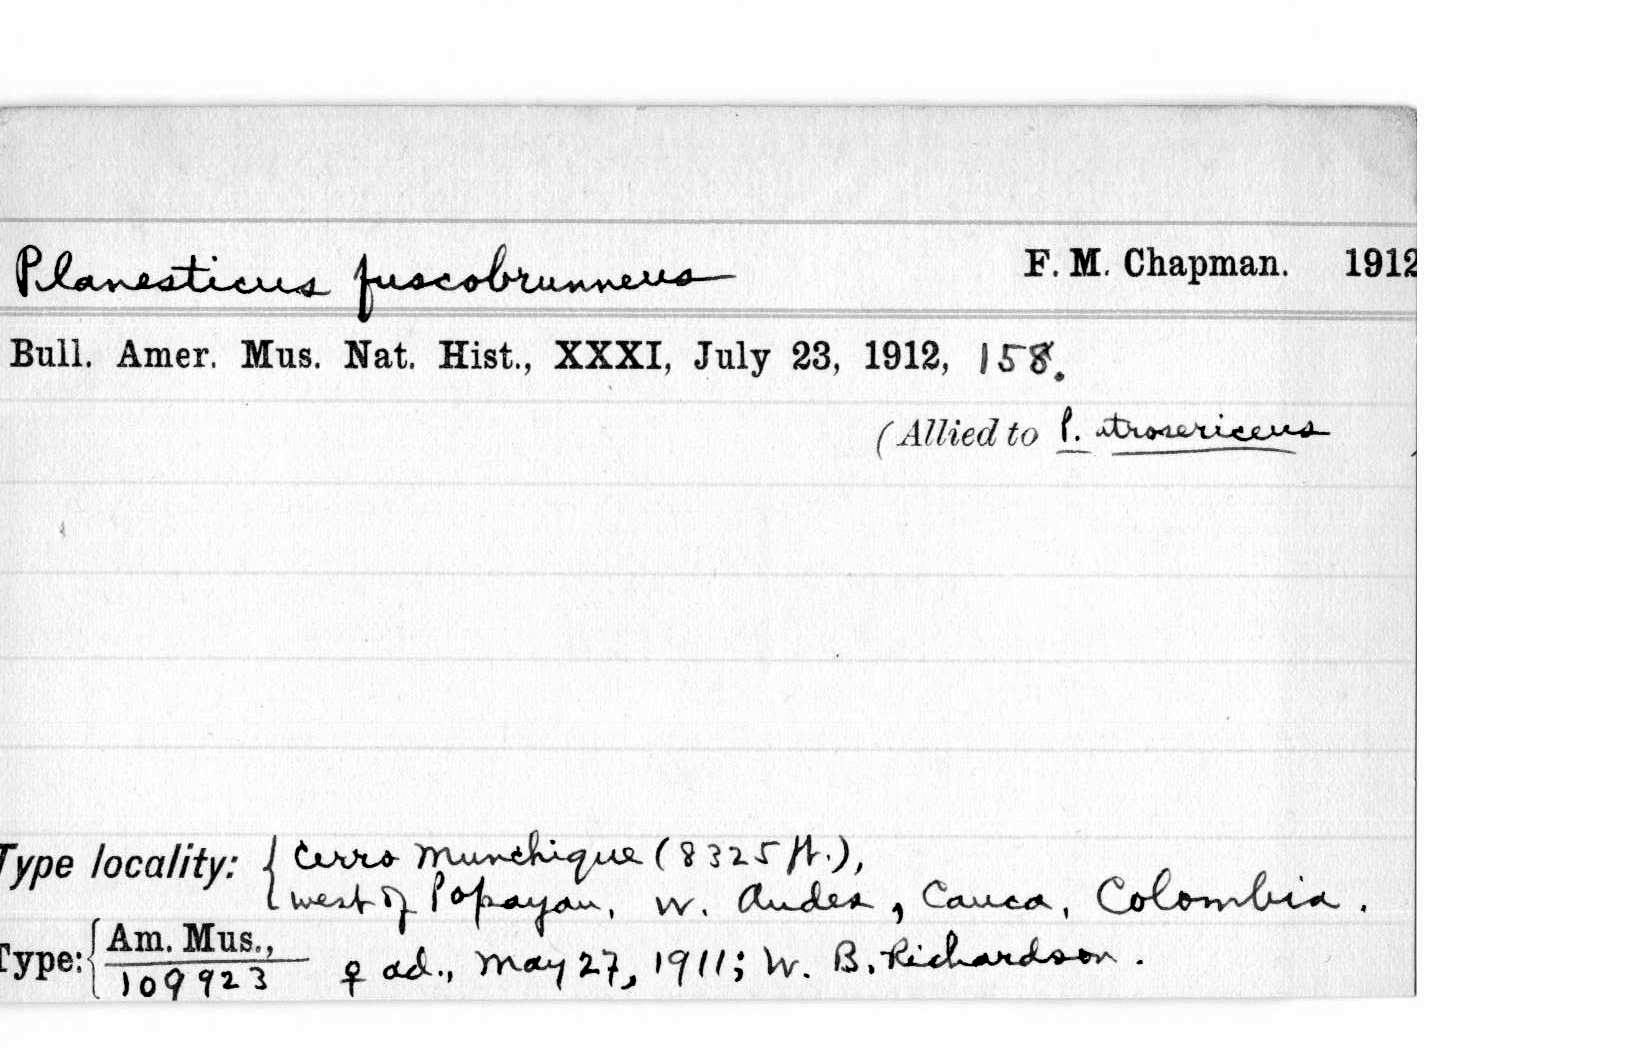 Planesticus fuscobrunneus F. M. Chapman. 1912
Bull. Amer. Mus. Nat. Hist., XXXI, July 23, 1912, 158.
(Allied to P. atrosericeus )
Type locality: { Cerro Munchique (8325 ft.),
west of Popayan, W. Andes, Cauca, Colombia.
Type: { Am. Mus.,
109923 ♀ ad., May 27, 1911; W. B. Richardson.